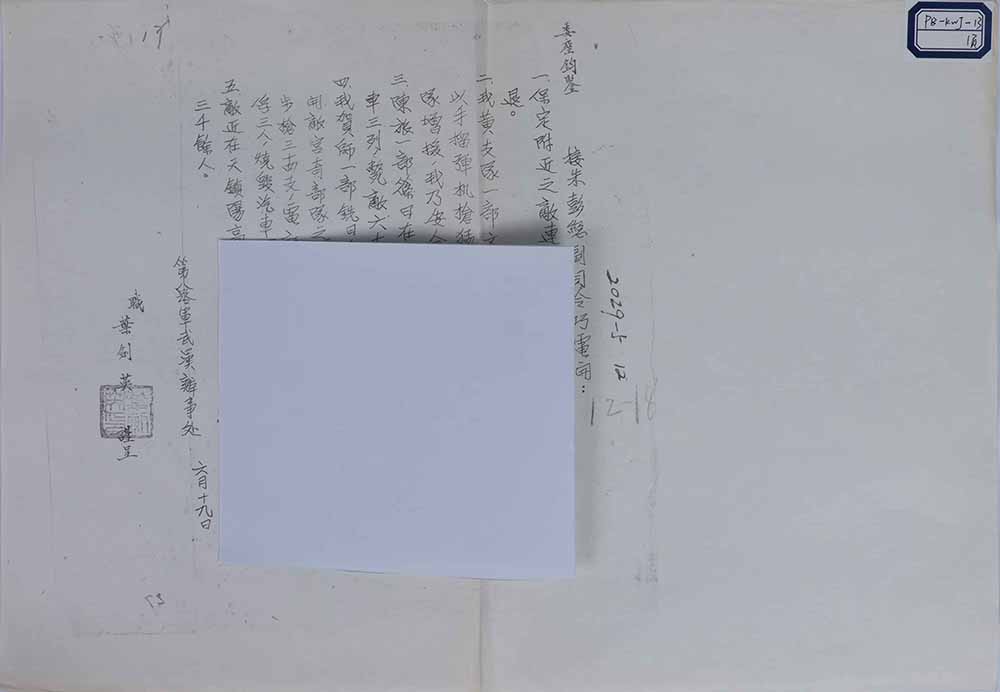 委座鈞鑒
接朱彭總副司令巧電開：
一、保定附近之敵連
退。
二、我黃支隊一部六
以手擂彈机搶猛
隊增援，我乃安全
三、陳旅一部篠日在
車三列，斃敵六十
四、我賀師一部銑日
開敵宮奇部隊之
步槍三十五支，電
俘三人，燒毀汽車
五、敵近在天鎮陽高
三千餘人。
第八路軍武漢辦事处
職葉劍英 謹呈
六月十九日
2029-5 12
12-18
PB-KWJ-13
1頁
73